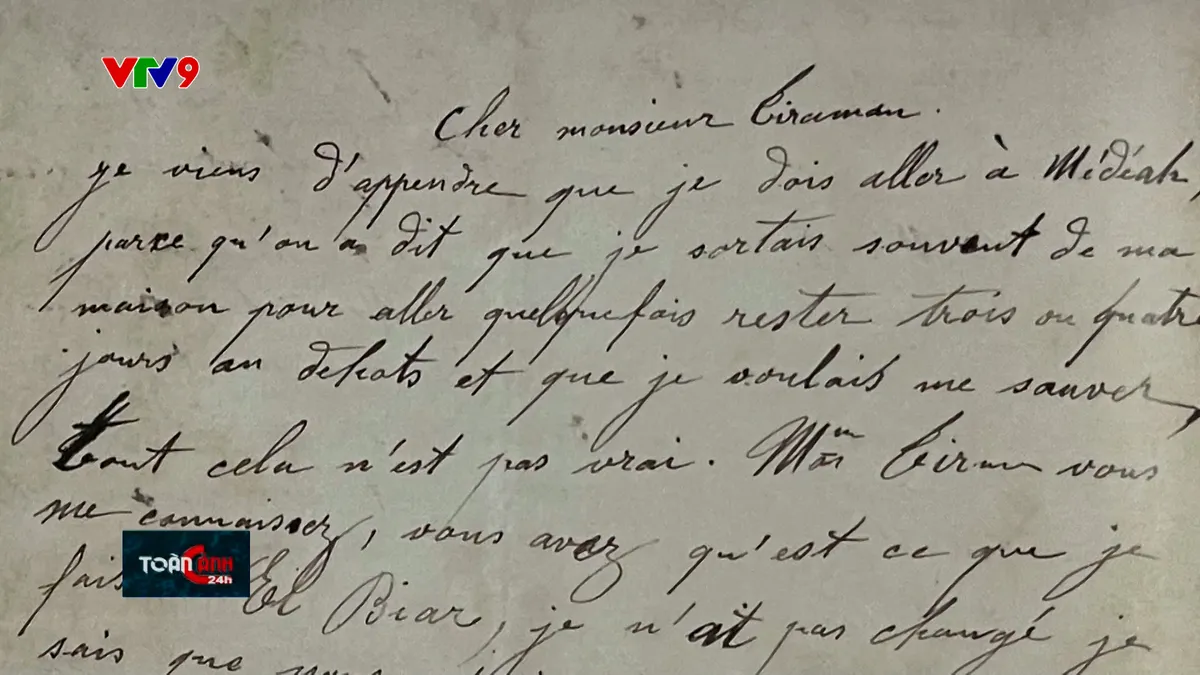 VTV9
Cher monsieur Tiraman.
je viens d'appendre que je dois aller à Médéah,
parce qu'on a dit que je sortais souvent de ma
maison pour aller quelquefois rester trois ou quatre
jours au dehots et que je voulais me sauver,
tout cela n'est pas vrai. Mon vous
me connaissez, vous avez qu'est ce que je
TOÀN CẢNH
24h
fais El Biar, je n'ait pas changé je
sais que